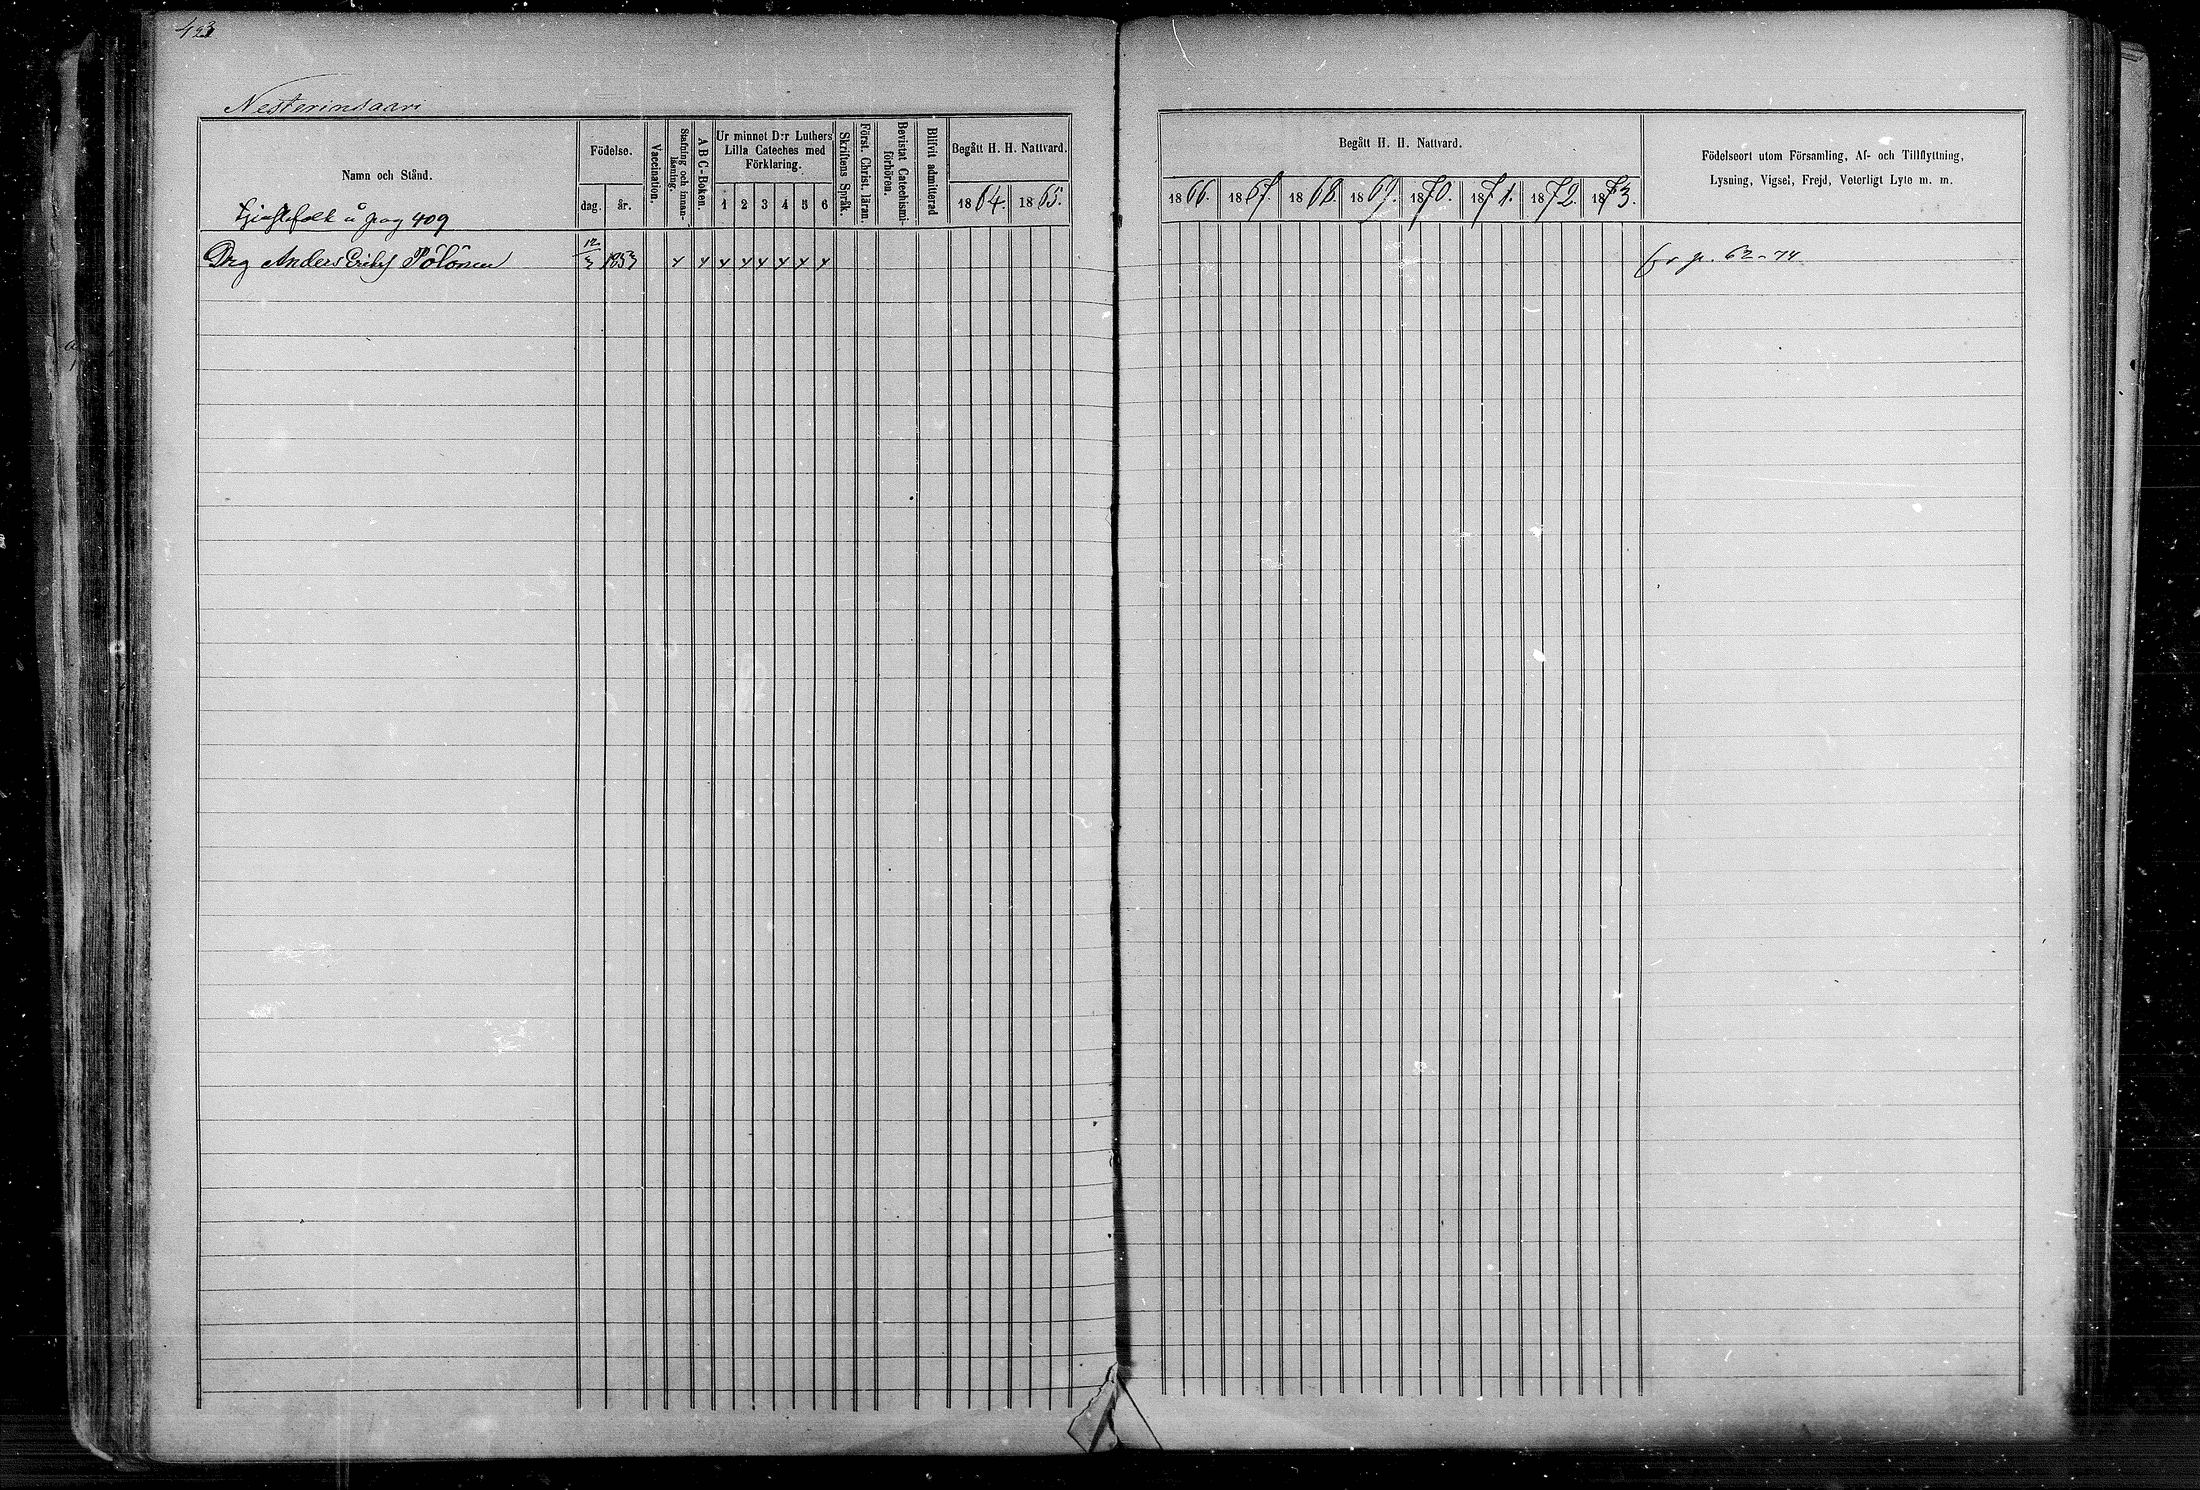 423
Nesterinsaari
Namn och Stånd.
Födelse.
dag.
år.
Vaccination.
Stafning och innan-
läsning.
A B C-Boken.
Ur minnet D:r Luthers
Lilla Cateches med
Förklaring.
1 2 3 4 5 6
Skriftens Språk.
Först. Christ. läran.
Bevistat Catechismi-
förhören.
Blifvit admitterad
Begått H. H. Nattvard.
1864. 1865.
Begått H. H. Nattvard.
1866. 1867. 1868. 1869. 1870. 1871. 1872. 1873.
Födelseort utom Församling, Af- och Tillflyttning,
Lysning, Vigsel, Frejd, Veterligt Lyte m. m.
Tjenstefolk å pag 409
Drg Anders Erikss Pölönen 12/3 1853 fr p. 62-74